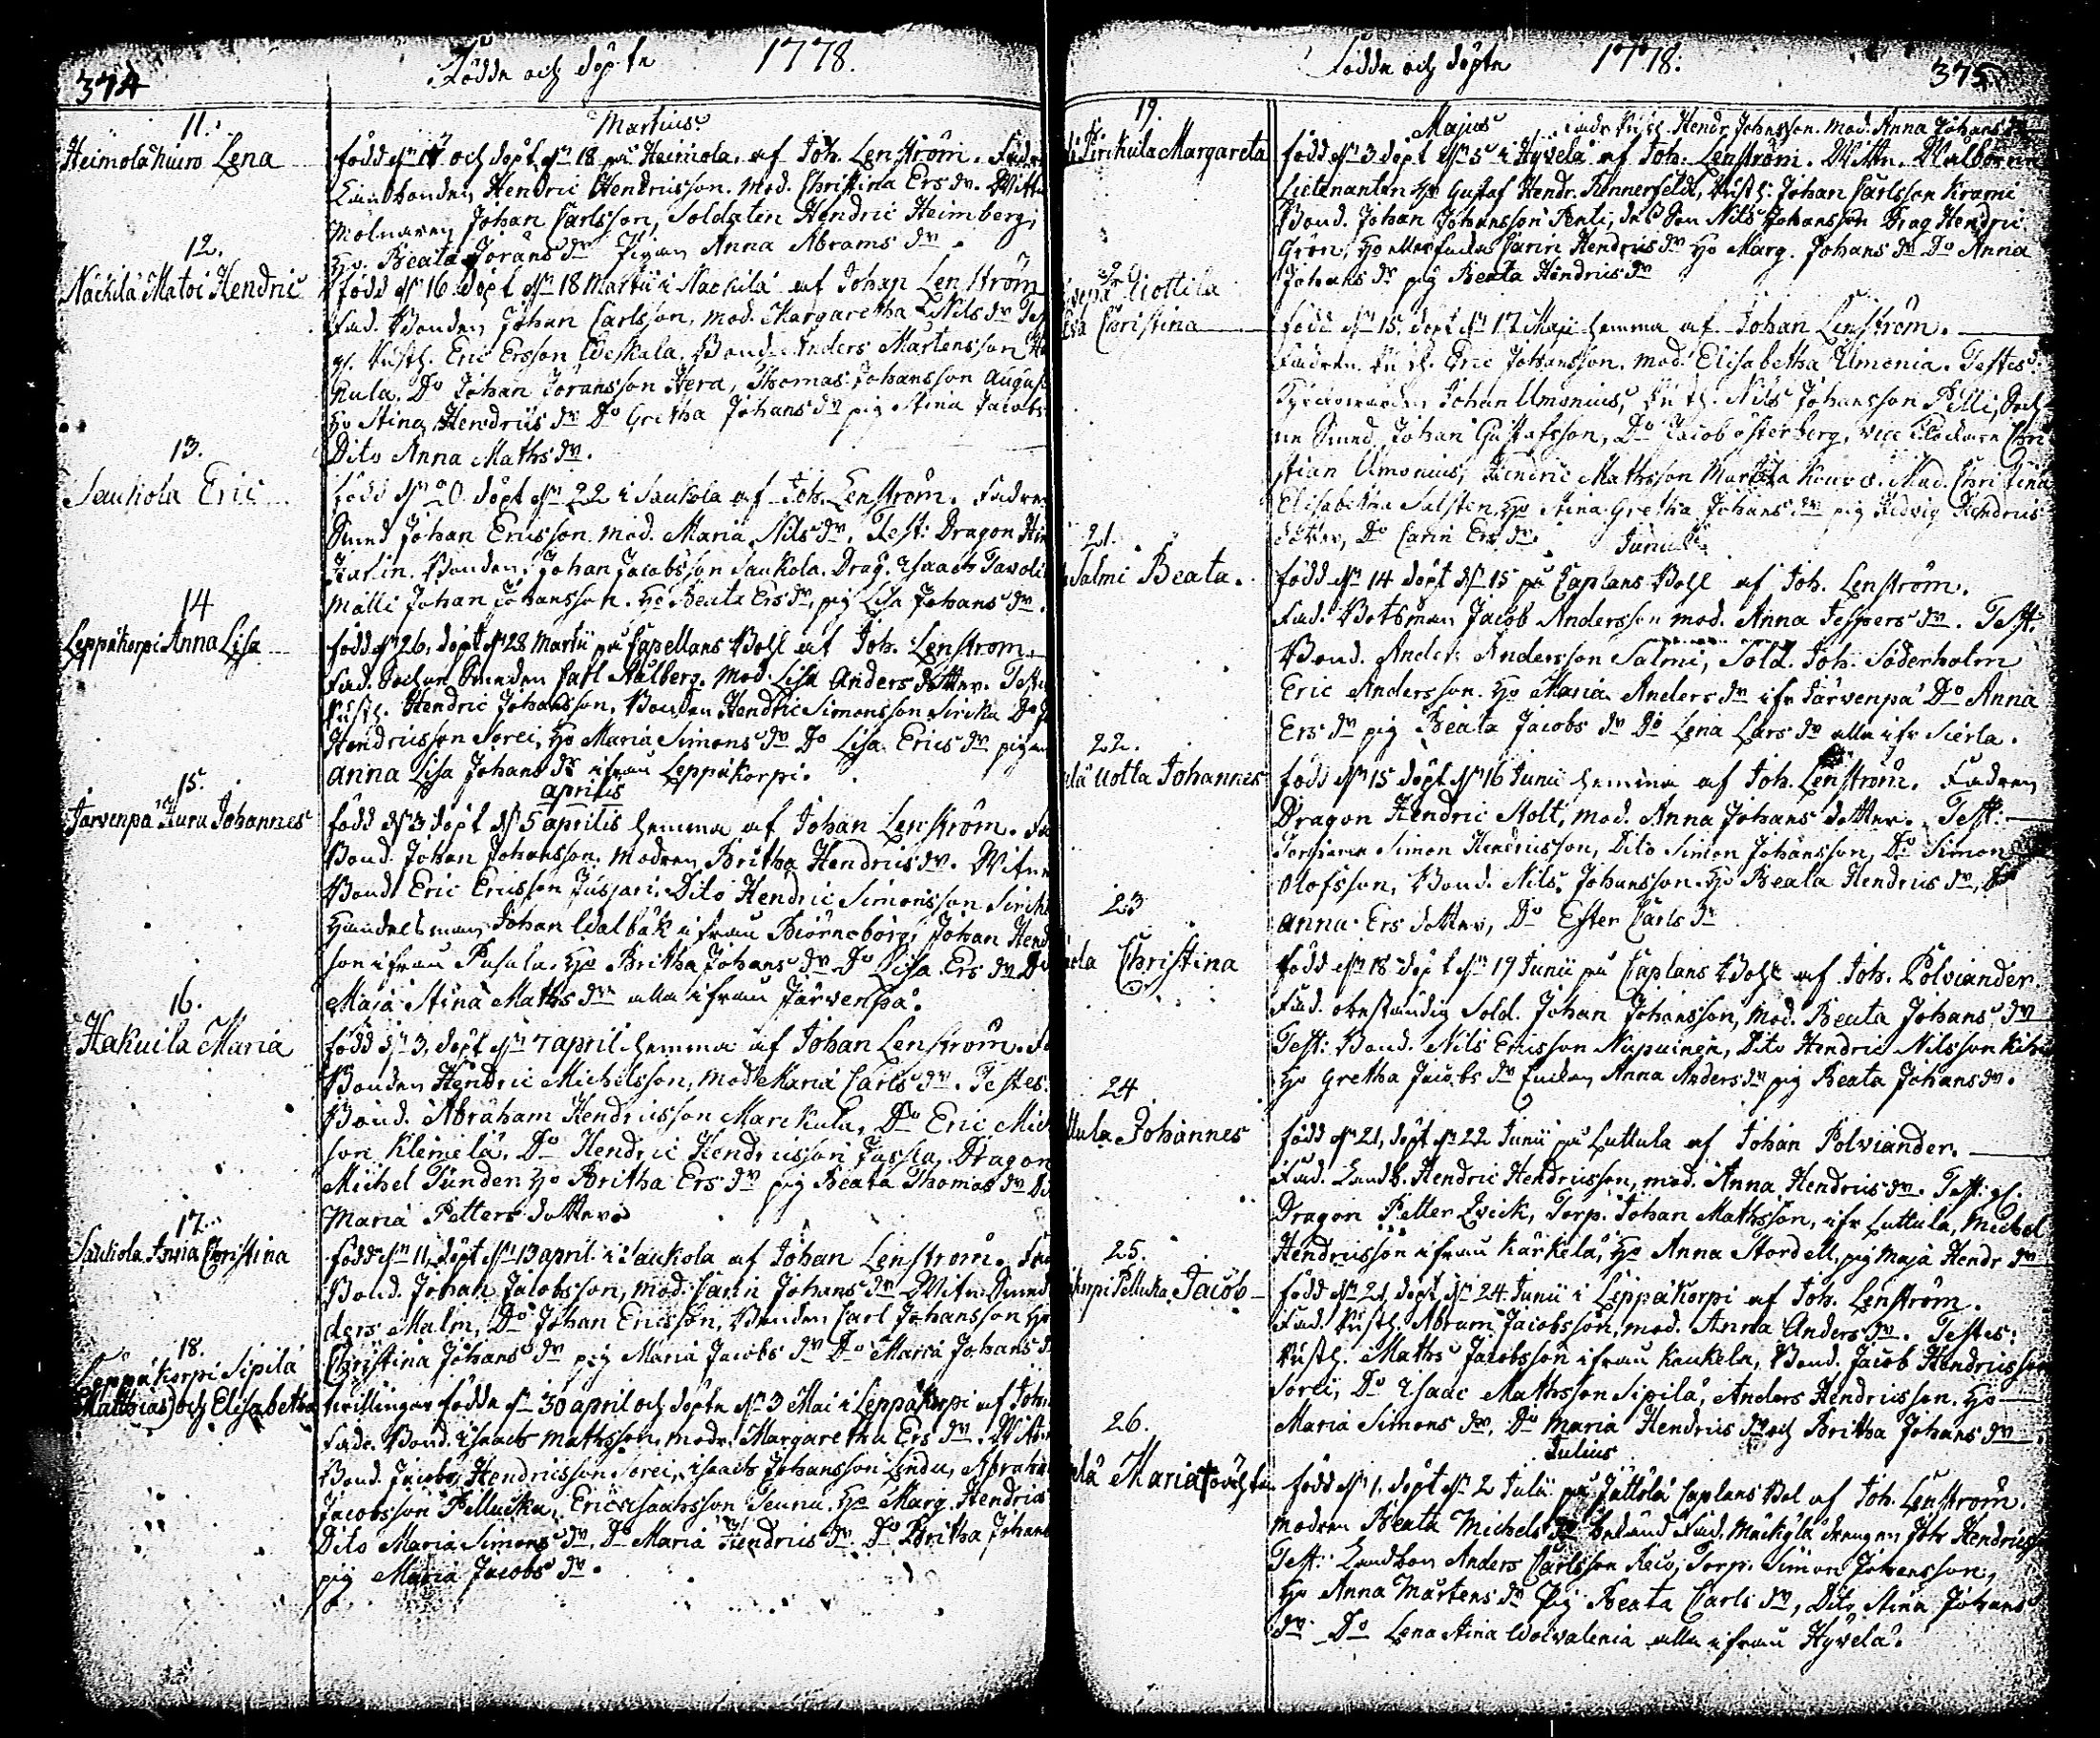 374
Födde och döpte 1778.
Martius
11.
Heimola huiro Lena
född dn 17 och döpt dn 18 på Heimola. af Joh. Lenström. Fadr
Landbonden Hendric Hendricsson. mod. Christina Ers dr. Wittn
Molnaren Johan Carlsson, Soldaten Hendric Heimberg,
Ho. Beata Jörans dr Pigan Anna Abrams dr.
12.
Näckilä Matoi Hendric
född dn 16 döpt dn 18 Martii i Näckilä af Johan Lenström
Fad. Bonden Johan Carlsson, mod. Margaretha Nils dr Tes
gl. Rusth. Eric Ersson Weskala. Bond. Anders Mårtensson
kula. Do Johan Jöransson Hera, Thomas Johansson
Ho Stina Hendrics dr Do Gretha Johans dr pig Stina Jacobs
Dito Anna Maths dr.
13.
Saukola Eric
född dn 20 döpt dn 22 i Saukola af Joh. Lenström. Fadren
Smed Johan Ericsson mod. Maria Nils dr. Test: Dragon
Bonden Johan Jacobsson Saukola. Drag. Isaach
Mälli Johan Johansson. Ho Beata Ers dr, pig Lisa Johans dr.
14
Leppäkorpi Anna Lisa
född dn 26, döpt dn 28 Martii på Capellans Bohl af Joh. Lenström
Fad. Sochne Smeden Carl Ahlberg. Mod. Lisa Anders dotter. Test
Rusth. Hendric Johansson, Bonden Hendric Simonsson Sirika Do
Hendricsson Sorei, Ho Maria Simons dr Do Lisa Erics dr pigan
Anna Lisa Johans dr ifrån Leppäkorpi.
Aprilis
15.
Järvenpä Kuru Johannes
född dn 3 döpt dn 5 aprilis hemma af Johan Lenström. Fa
Bond. Johan Johansson. Modren Britha Hendrics dr. Witne
Bond. Eric Ericsson Jusjari. Dito Hendric Simonsson
Handelsman Johan Walbäk ifrån Biörneborg, Johan Hend
son ifrån Pasala. Ho Britha Johans dr Do Lisa Ers dr Do
Maja Stina Maths dr alla ifrån Järvenpä.
16.
Hakuila Maria
född dn 3, döpt dn 7 april hemma af Johan Lenström. Fa
Bonden Hendric Michelsson, Mod. Maria Carls dr. Testes.
Bond. Abraham Hendricsson Marckula, Do Eric Mich
son Klemelä. Do Hendric Hendricsson Jussila, Dragon
Michel Tunder Ho Britha Ers dr pig Beata Thomas dr Do
Maria Petters dotter.
17.
Saukola Anna Christina
född dn 11, döpt dn 13 april i Saukola af Johan Lenström. Fad
Bond. Johan Jacobsson, mod: Carin Johans dr Witn. Smed
ders Malm, Do Johan Ericsson, Bonden Carl Johansson Ho
Christina Johans dr pig Maria Jacobs dr Do Maria Johans d
18.
Leppäkorpi Sipilä
Matthias och Elisabetha
tvillingar födde dn 30 april och döpte dn 3 Mai i Leppäkorpi af Joh
Fadr. Bond. Isaach Mathsson, modr. Margaretha Ers dr. Witn
Bond. Jacob Hendricsson Sorei, Isaach Johansson Lindu, Abraha
Jacobsson Pelluska, Eric Isaachsson Seunu. Ho Marg. Hendrics
Dito Maria Simons dr, Do Maria Hendrics dr. Do Britha Johans
pig Maria Jacobs dr.
Födde och döpte 1778.
375
Majus
19.
Pirckula Margareta
Fadr Rusth. Hendr. Johnsson. Mod. Anna Johans dr
född dn 3 döpt dn 5 i Hyvelä af Joh. Lenström. Wittn.
Lieutnanten Hr Gustaf Hendr. Rönnerfeldt, Rusth: Johan Carlsson Krami
Bond. Johan Johansson Penti, dess Son Nils Johansson Drag Hendric
Grön, Carin Hendrics dr Ho Marg. Johans dr Do Anna
Johans dr pig Beata Hendrics dr
20
Uottila
Christina
född dn 15, döpt dn 17 Maji hemma af Johan Lenström.
Fadren Rusth. Eric Johansson. Mod. Elisabetha Umonia. Testes.
Johan Umonius, Rusth. Nils Johansson Pelli, Soch
ne Smed. Johan Gustafsson, Do Jacob österberg, vice Klockare Chri
stian Umonius, Hendric Mathsson Mad. Christina
Elisabetha Salsten, Ho Stina Gretha Johans dr pig Hedvig Hendrics
dotter, Do Carin Ers dr.
Junius
21.
Salmi Beata.
född dn 14 döpt dn 15 på Caplans Bohl af Joh. Lenström.
Fad. Botsman Jacob Andersson mod. Anna Jespers dr. Test.
Bond. Anders Andersson Salmi, Sold. Joh. Söderholm
Eric Andersson. Ho Maria Anders dr ifr Järvenpä Do Anna
Ers dr pig Beata Jacobs dr Do Lena Lars dr alla ifr Sierla.
22.
Uotla Johannes
född dn 15 döpt dn 16 Junii hemma af Joh. Lenström. Fadren
Dragon Hendric Stolt, mod. Anna Johans dotter. Test.
Torparen Simon Hendricsson, Dito Simon Johansson, Do Simon
Olofsson, Bond. Nils Johansson. Ho Beata Hendrics dr, Do
Anna Ers dotter, Do Ester Carls dr
23
Christina
född dn 18 döpt dn 19 Junii på Caplans Bohl af Joh. Polviander.
Fad. obeständig Sold. Johan Johansson, Mod. Beata Johans dr
Test: Bond. Nils Ericsson Nupuinen, Dito Hendric Nilsson
Ho Gretha Jacobs dr Enkan Anna Anders dr pig Beata Johans dr.
24
Johannes
född dn 21, döpt dn 22 Junii på Luttula af Johan Polviander.
Fad. Landb. Hendric Hendricsson, mod. Anna Hendrics dr. Test. gl.
Dragon Petter Qvick, Torp. Johan Mathsson, ifr Luttula, Michel
Hendricsson ifrån Kärkelä, Ho Anna Stordell, pig Maja Hendr dr
25.
korpi Pelluska Jacob
född dn 21, döpt dn 24 Junii i Leppäkorpi af Joh. Lenström.
Fad. Rusth. Abram Jacobsson, mod. Anna Anders dr. Testes:
Rusth. Maths Jacobsson ifrån Kaukela, Bond. Jacob Hendricsson
Sorei, Do Isaac Mathsson Sipilä, Anders Hendricsson. Ho
Maria Simons dr, Do Maria Hendrics dr och Britha Johans dr.
Julius
26.
Maria oächta
född dn 1. döpt dn 2 Julii på Jättölä Caplans Bol af Joh. Lenström.
Modren Beata Michels dr Fad. Mäckylä drengen Joh Hendricss
Test: Landbon Anders Carlsson Torp. Simon Johansson,
Ho Anna Mårtens dr Pig Beata Carls dr, Dito Stina Johans
dr Do Lena Stina Woivalenia alla ifrån Hyvelä.